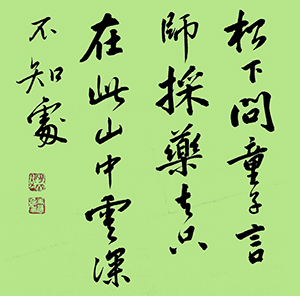 松下問童子言
師採藥去只
在此山中雲深
不知處